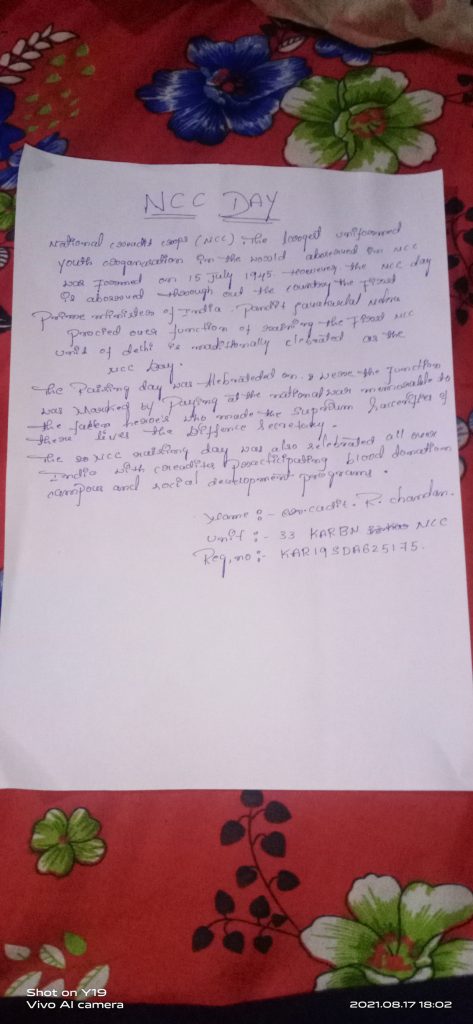 NCC DAY
National coreadit corps (NCC). The largest uniformed
youth oroganisation in the would aboserved in NCC
was formed on 15 July 1945. However the NCC day
is aboserved thorough out the country the First
prime minister of India. Pandit Javaharlal Neheru
procied over function of raising the First NCC
unit of delhi is traditionally clebrated as the
NCC Day.
The Raising day was on. & were the function
was Marked by Paying at the national war memorable to
the fallen heroe's who made the Suprium of
there lives the Deffence Secretary.
The NCC raising day was also celebrated all over
India with coreadits proacticipating blood donation
campus and social development programs.
Name :- cadit. R. chandan.
Unit :- 33 KARBN NCC
Reg, no :- KAR19SDA625175.
Shot on Y19
Vivo AI camera
2021.08.17 18:02